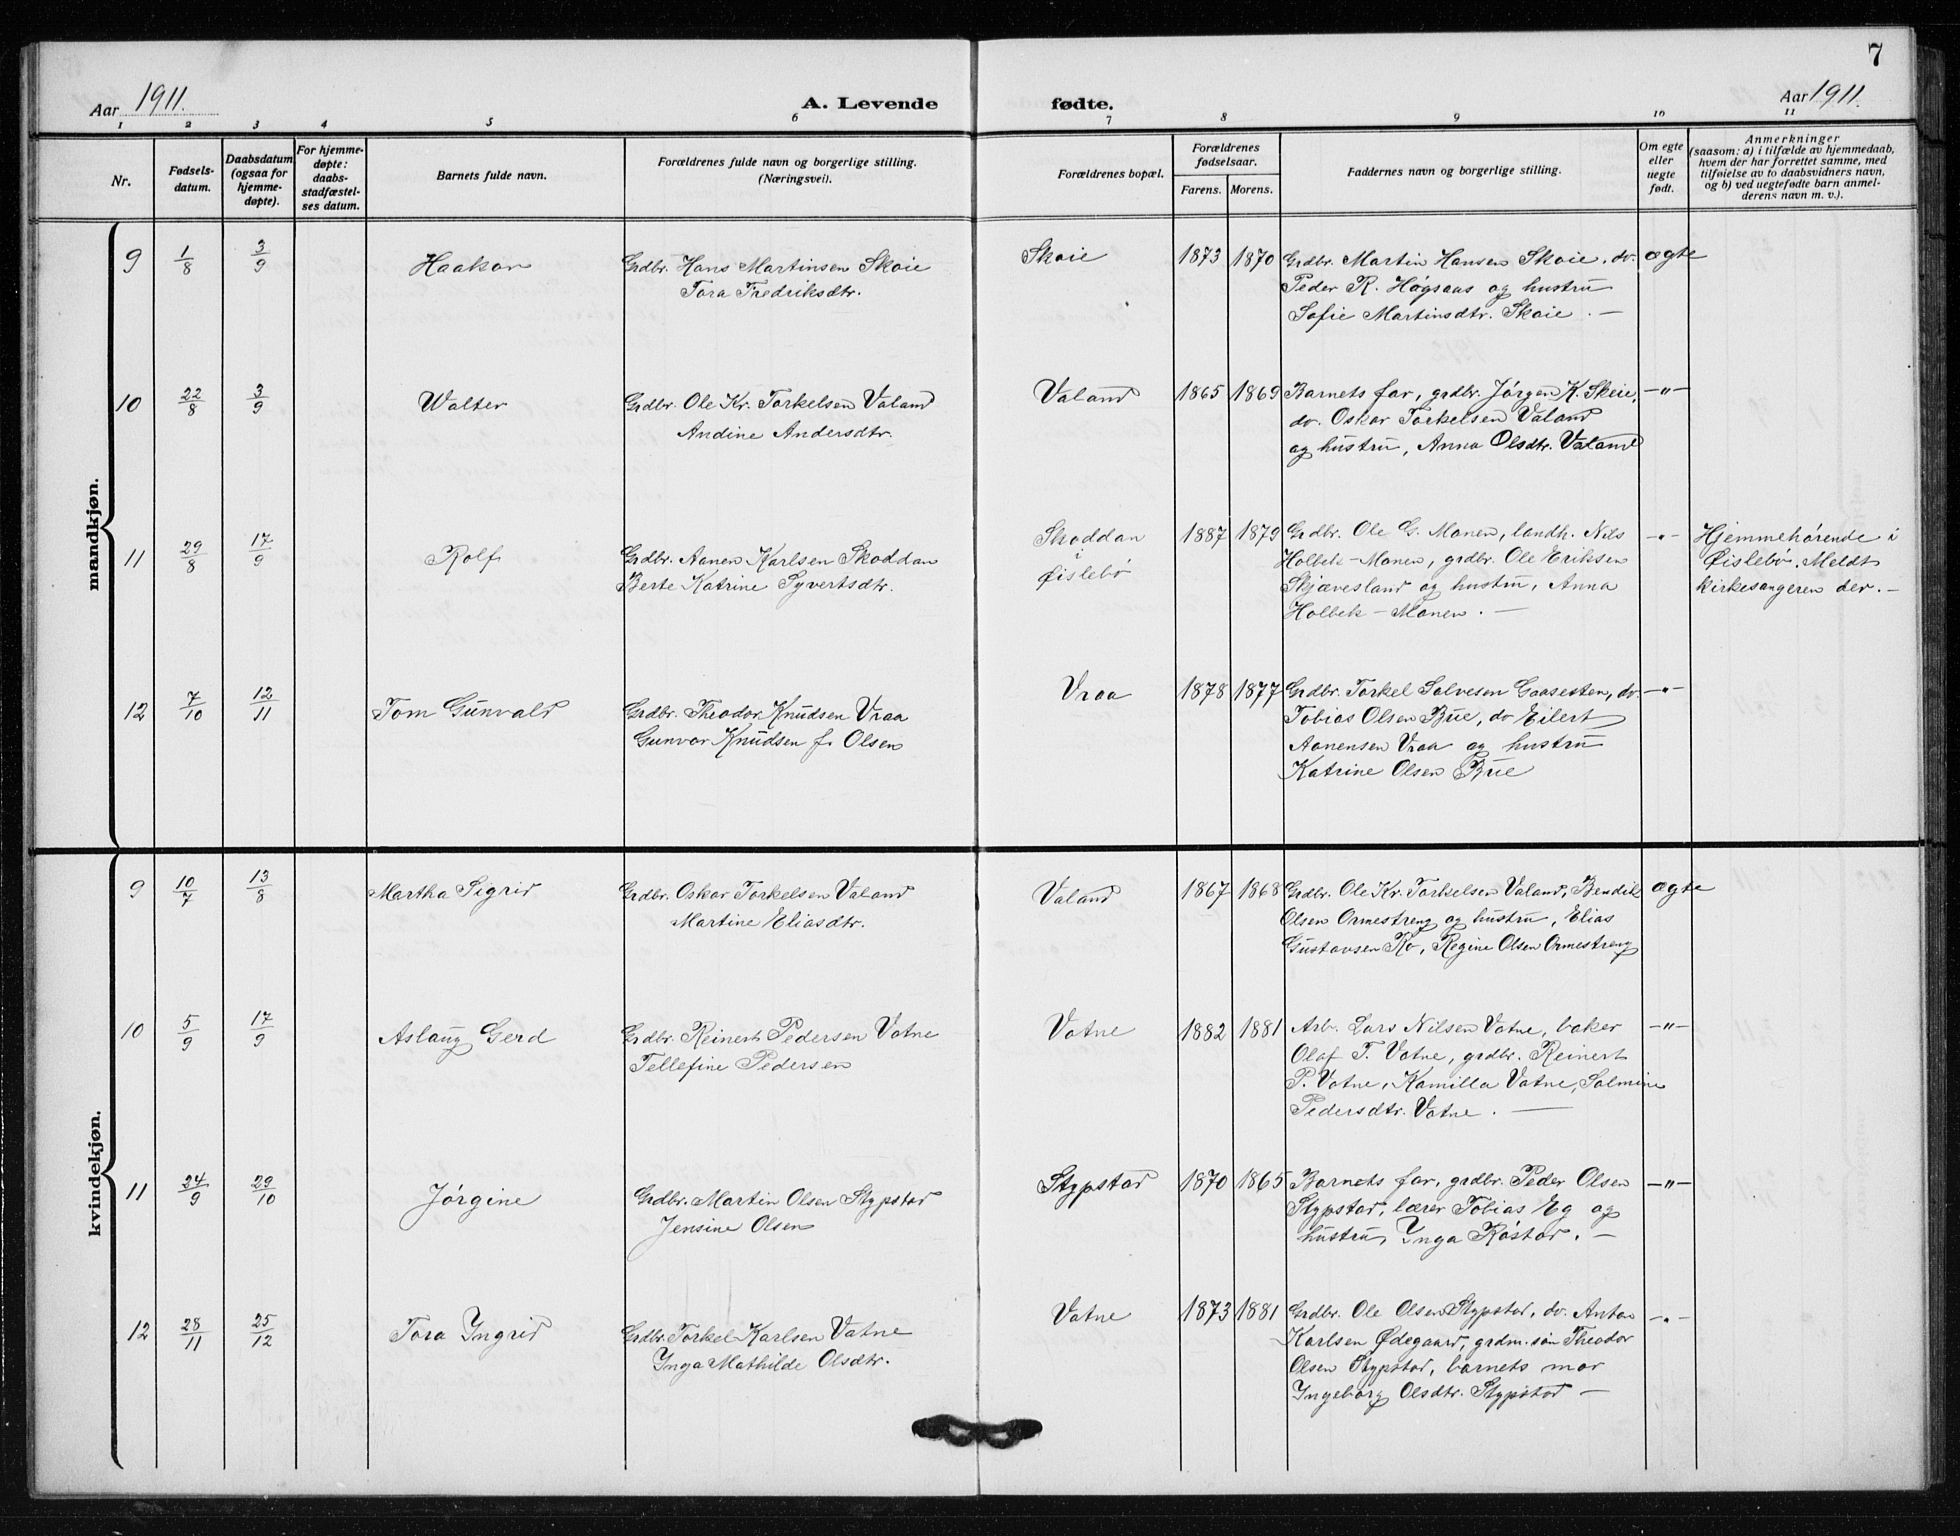 7
Aar 1911.
A. Levende fødte.
Aar 1911.
1 2 3 4 5 6 7 8 9 10 11
Nr.
Fødsels-
datum.
Daabsdatum
(ogsaa for
hjemme-
døpte).
For hjemme-
døpte:
daabs-
stadfæstel-
ses datum.
Barnets fulde navn.
Forældrenes fulde navn og borgerlige stilling.
(Næringsvei).
Forældrenes bopæl.
Forældrenes
fødselsaar.
Farens. Morens.
Faddernes navn og borgerlige stilling.
Om egte
eller
uegte
født.
Anmerkninger
(saasom: a) i tilfælde av hjemmedaab,
hvem der har forrettet samme, med
tilføielse av to daabsvidners navn,
og b) ved uegtefødte barn anmel-
derens navn m. v.).
mandkjøn.
9 1/8 3/9 Haakon
Grdbr. Hans Martinsen Skoie
Tora Fredriksdtr.
Skoie 1873 1870
Grdbr. Martin Hansen Skoie, do.
Peder R. Høgsaas og hustru
Sofie Martinsdtr. Skoie. —
ægte
10 22/8 3/9 Walter
Grdbr. Ole Kr. Torkelsen Valand
Andine Andersdtr.
Valand 1865 1869
Barnets far, grdbr. Jørgen K. Skeie,
do. Oskar Torkelsen Valand
og hustru, Anna Olsdtr. Valand
—"—
11 29/8 17/9 Rolf
Grdbr. Aanen Karlsen Skoddan
Berte Katrine Syvertsdtr.
Skoddan
i
Øislebø
1887 1879
Grdbr. Ole G. Monen, landh. Nils
Holbek-Monen, grdbr. Ole Eriksen
Skjævesland og hustru, Anna
Holbek-Monen. —
—"—
Hjemmehørende i
Øislebø. Meldt
kirkesangeren der. —
12 7/10 12/11 Tom Gunvald
Grdbr. Theodor Knudsen Vraa
Gunvor Knudsen f. Olsen
Vraa 1878 1877
Grdbr. Torkel Salvesen Gaasesten, do.
Tobias Olsen Bue, do Eilert
Aanensen Vraa og hustru
Katrine Olsen Bue
—"—
kvindekjøn.
9 10/7 13/8 Martha Sigrid
Grdbr. Oskar Torkelsen Valand
Martine Eliasdtr.
Valand 1867 1868
Grdbr. Ole Kr. Torkelsen Valand, Bendik
Olsen Ormestreng og hustru, Elias
Gustavsen Ro, Regine Olsen Ormestreng
ægte
10 5/9 17/9 Aslaug Gerd
Grdbr. Reinert Pedersen Votne
Tellefine Pedersen
Votne 1882 1881
Arb. Lars Nilsen Votne, baker
Olaf T. Votne, grdbr. Reinert
P. Votne, Kamilla Votne, Salmine
Pedersdtr. Votne. —
—"—
11 24/9 29/10 Jørgine
Grdbr. Martin Olsen Stypstad
Jensine Olsen
Stypstad 1870 1865
Barnets far, grdbr. Peder Olsen
Stypstad, lærer Tobias Eg og
hustru, Inga Røstad. —
—"—
12 28/11 25/12 Tora Ingrid
Grdbr. Torkel Karlsen Vatne
Inga Mathilde Olsdtr.
Votne 1873 1881
Grdbr. Ole Olsen Stypstad, do. Anton
Karlsen Ødegaard, grdm. søn Theodor
Olsen Stypstad, barnets mor
Ingeborg Olsdtr. Stypstad —
—"—